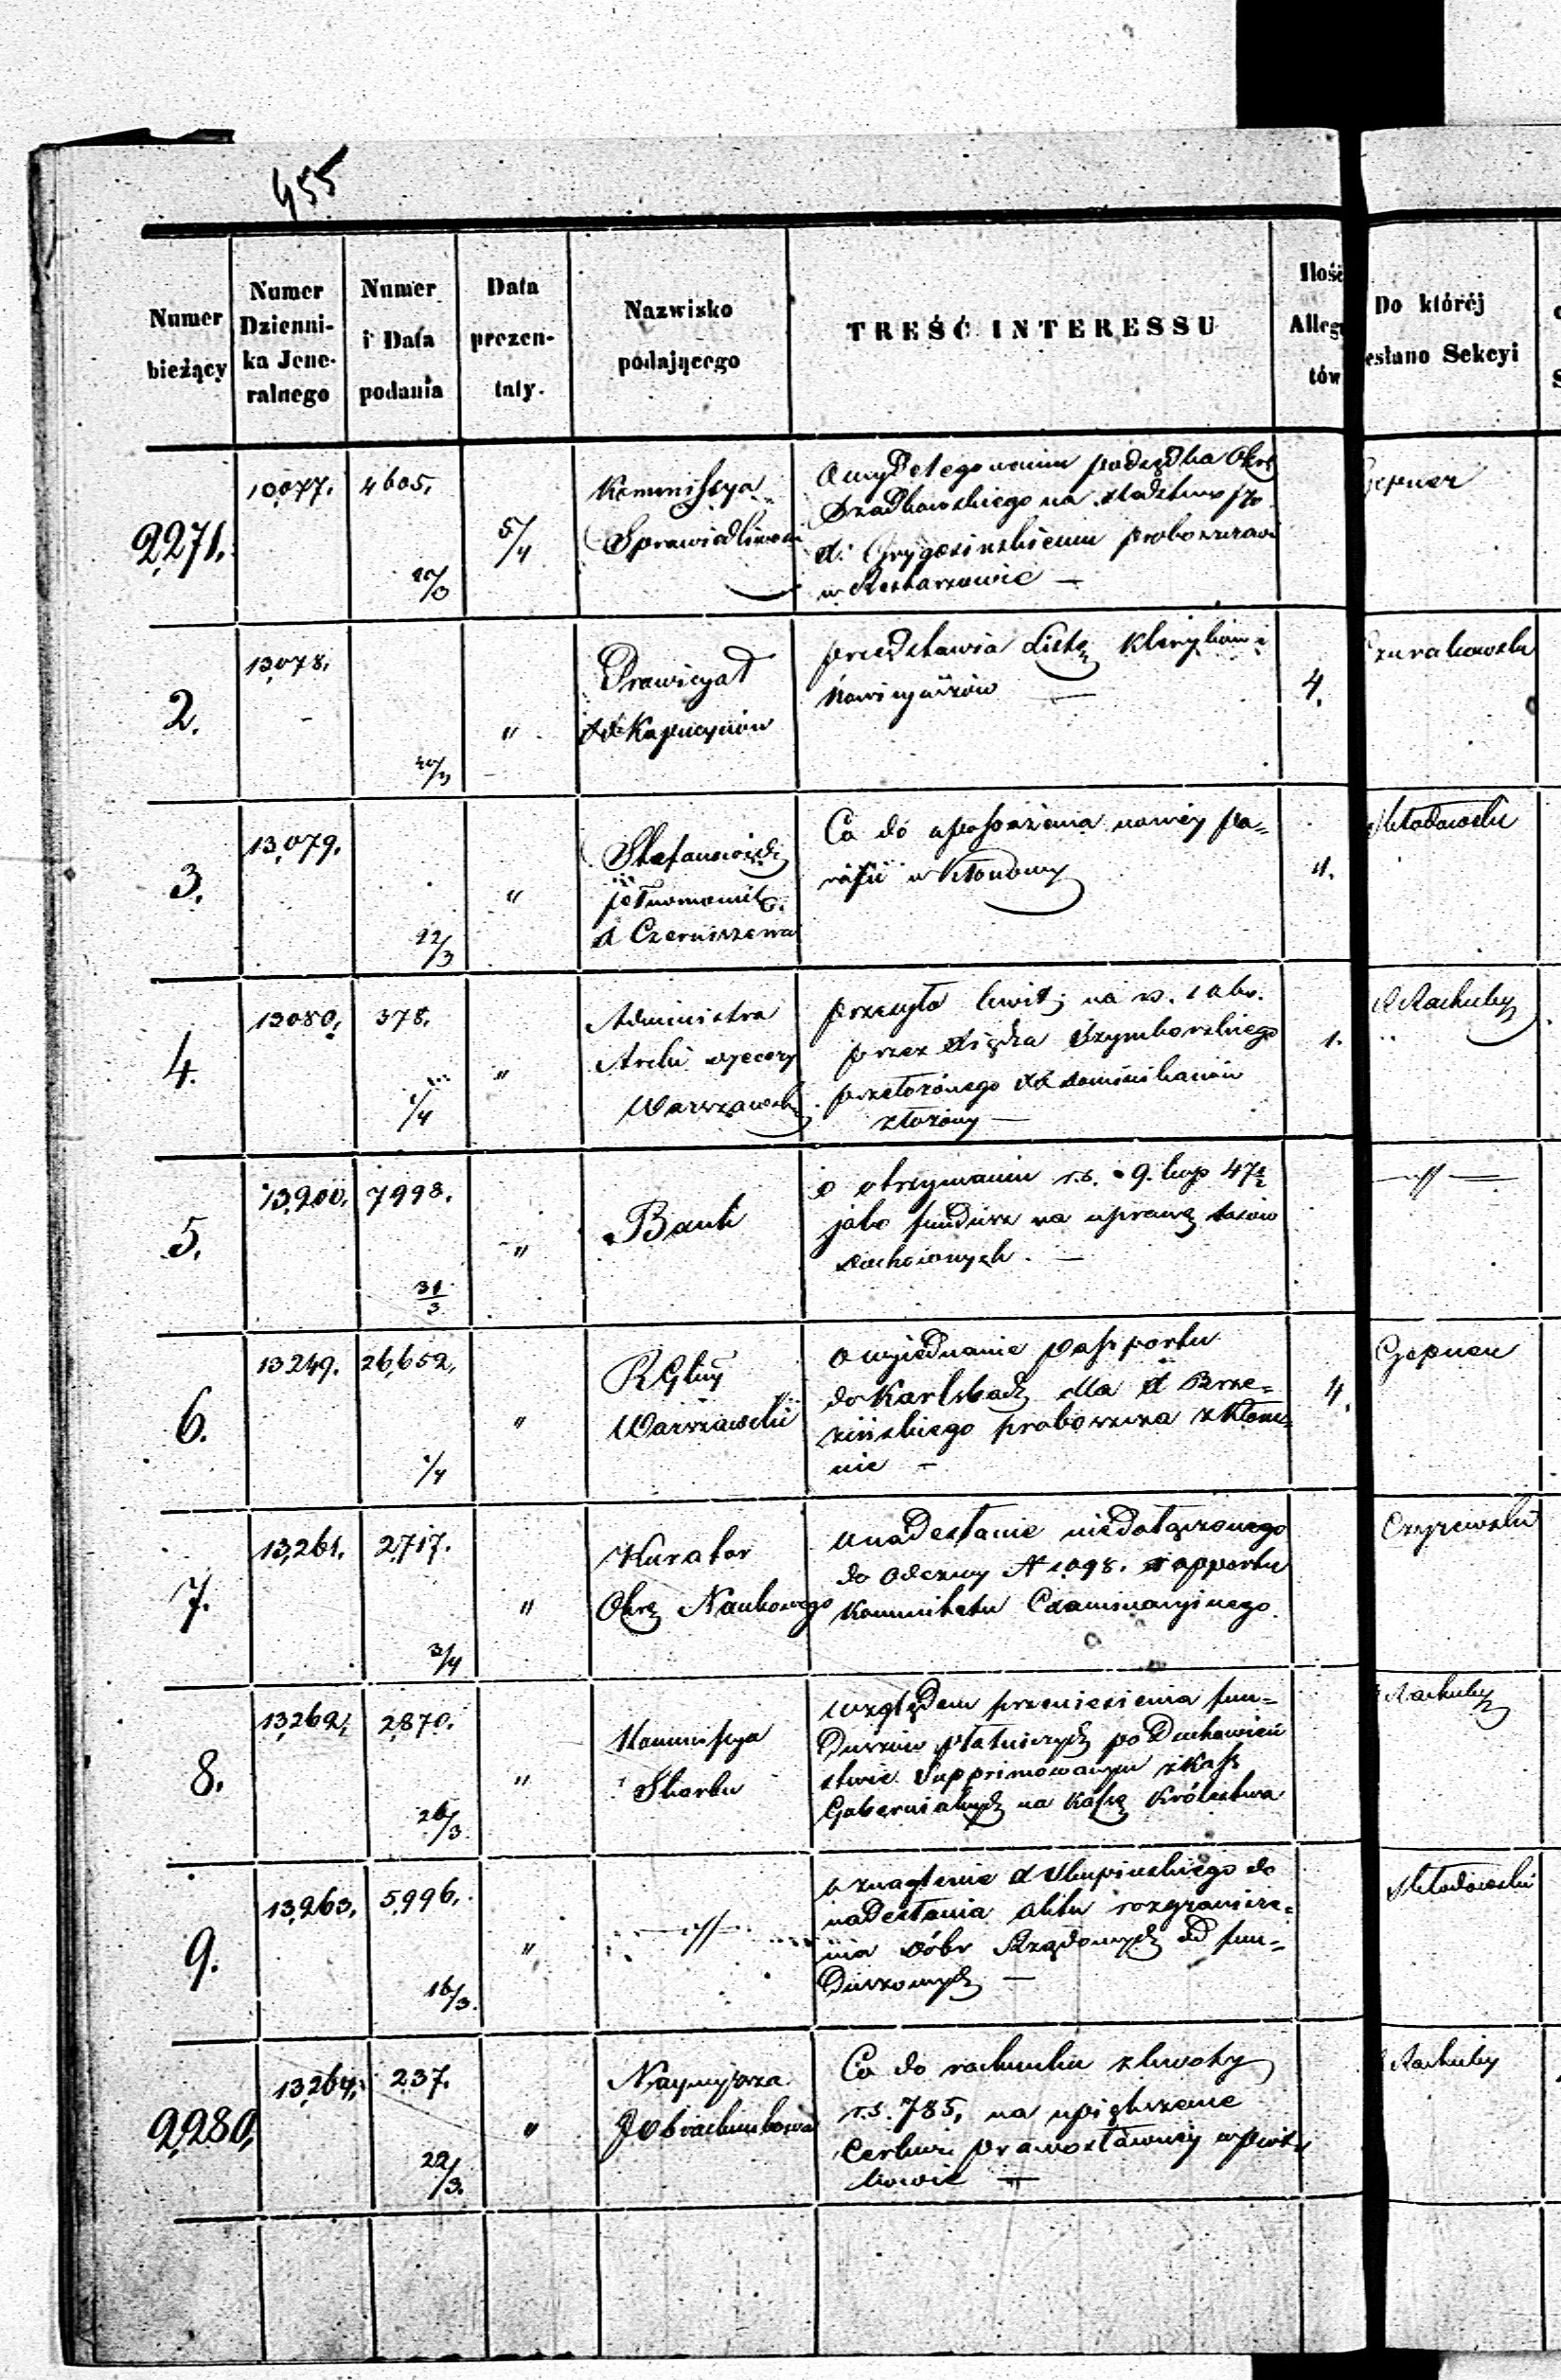 455
Numer bieżący
Numer Dzienni-
ka Jene-
ralnego
Numer
i Data
podania
Data
prezen-
taty.
Nazwisko
podającego
TREŚĆ INTERESSU
Ilość
Alleg
tów
Do któréj
esłano Sekcyi
2271.
10077.
4605.
20/3
5/4
Kommissya
Sprawiedliwości
O wydelegowaniu podsędka Okrę
Szadkowskiego na śledztwo
X. proboszczowi
w Restarzewie —
Gepner
2.
13078.
20/3
"
Prowicyał
XX Kapucynów
przedstawia Listę Kleryków i
Nowicyuszów —
4.
3.
13,079.
22/3
"
Stefanowicz
X Czerniszewa
Co do uposażenia nowéy pa=
rafii w Klonowy
4.
Skłodowski
4.
13080.
378.
1/4
"
Administra
Archi
Warszawsk
przesyła kwit na rs. 1
przez Xiędza Szymborskiego
przełożonego XX dominikanów
złożony —
1.
Rachuby
5.
13,200.
7998.
31/3
"
Bank
o otrzymaniu r.s. 9. kop 47½
jako fundusz na uprawę lasów
duchownych. —
—//—
6.
13249.
26,652.
1/4
"
RGlny
Warszawski
o wyiednanie passportu
do Karlsbadu dla X Brze=
zińskiego proboszcza
nie —
4.
Gepner
7.
13,261.
2717.
3/4
"
Kurator
Okrę Naukowego
o nadesłanie niedołączonego
do odezwy N 1098. rapportu
Kommitetu Examinacyjnego.
Czyżewski
8.
13,262.
2870.
26/3
"
Kommissya
Skarbu
względem przeniesienia fun=
duszów płatniczych po Duchowień
stwie Supprimowanym z Kass
Gubernialnych na Kassę Królestwa
Rachuby
9.
13,263.
5996.
16/3.
"
—//—
o znaglenie X Słupinskiego do
nadesłania aktu rozgranicze=
nia dóbr Rządowych od fun=
duszowych —
Skłodowski
2280.
13,264.
237.
22/3.
"
Naywyższa
Izb rachunkowa
Co do rachunku z kwoty
r.s. 785, na upiększenie
Cerkwi prawosławney w Piotr
kowie —
Rachuby